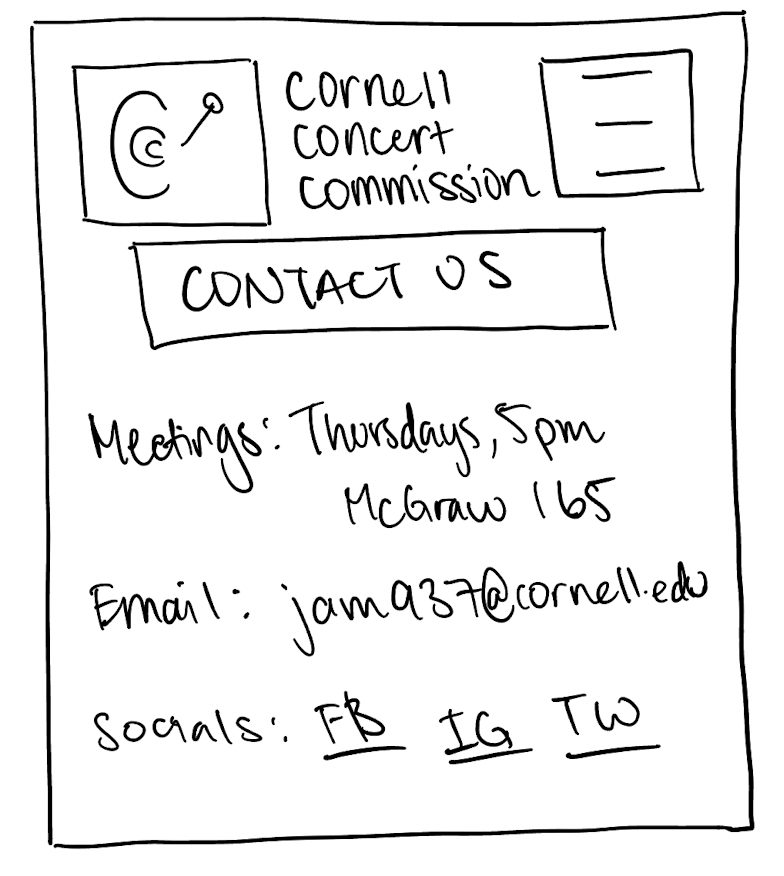 CCC
cornell
concert
commission
CONTACT US
Meetings: Thursdays, 5pm
McGraw 165
Email: jam937@cornell.edu
Socials: FB IG TW